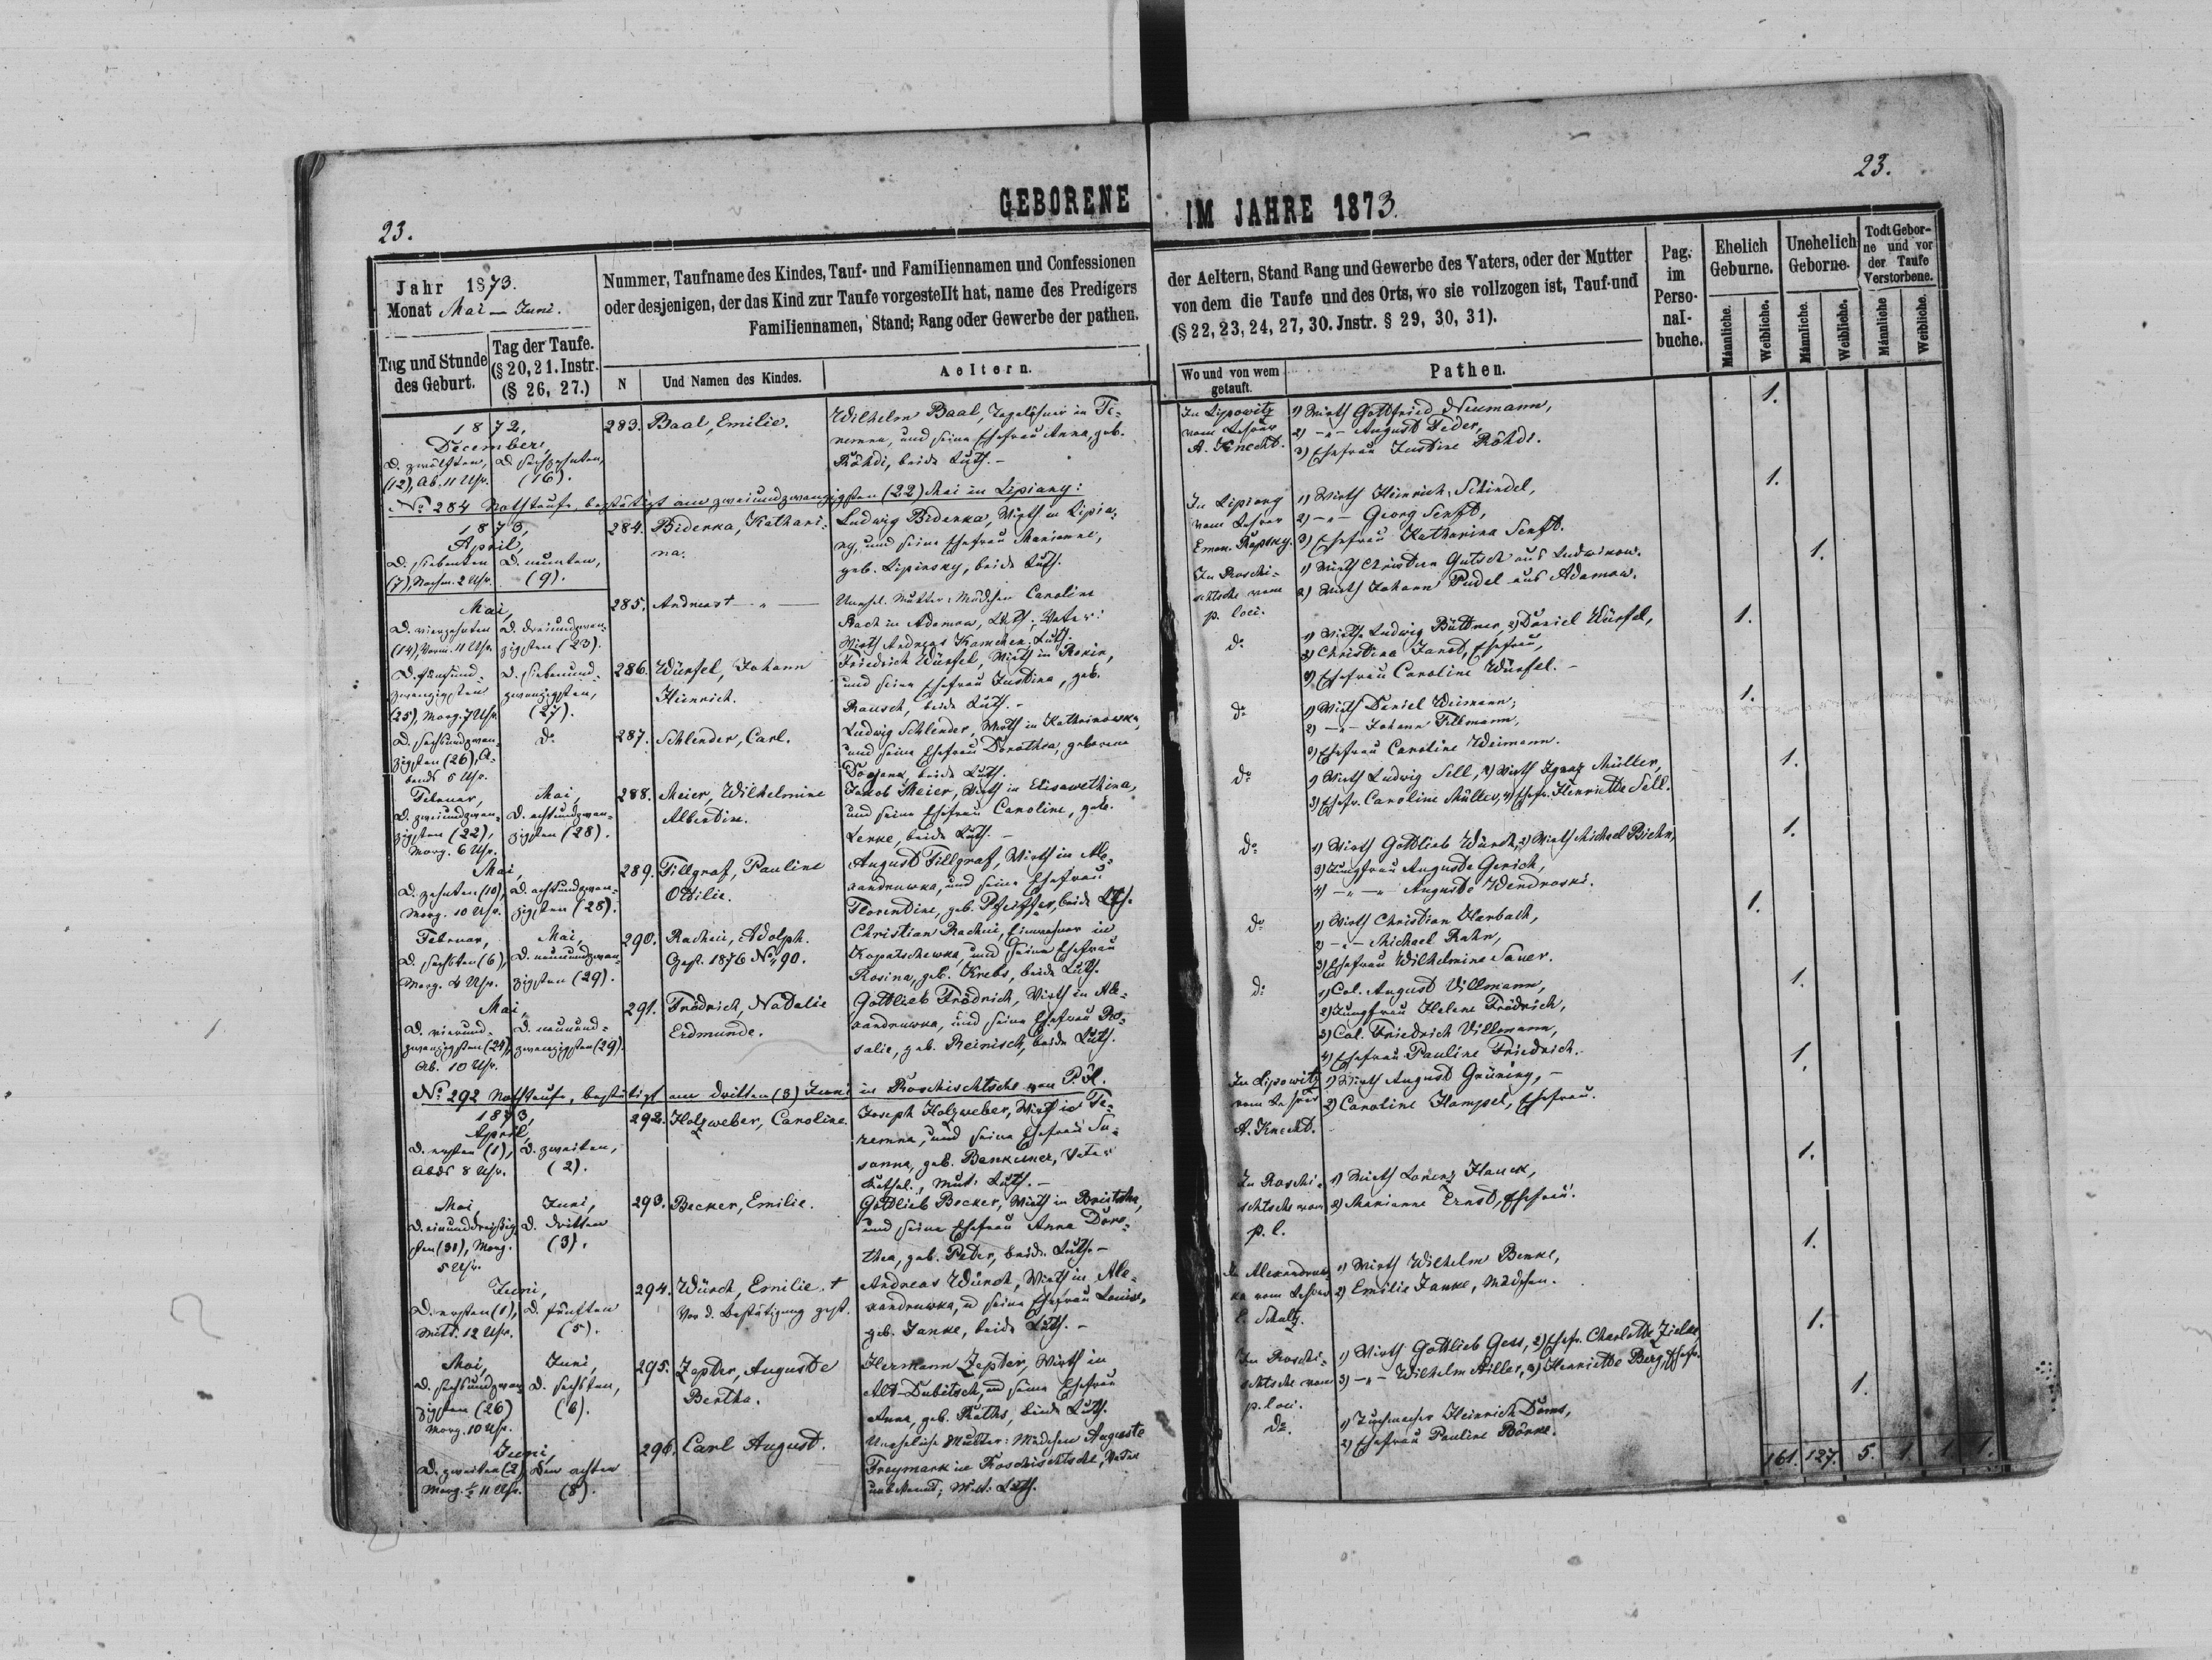 23.
GEBORENE
IM JAHRE 1873.
23.
Jahr 1873.
Monat Mai — Juni.
Tag und Stunde
des Geburt.
Tag der Taufe.
(§ 20, 21. Instr.
(§ 26, 27.)
Nummer, Taufname des Kindes, Tauf- und Familiennamen und Confessionen
oder desjenigen, der das Kind zur Taufe vorgestellt hat, name des Predigers
Familiennamen, Stand; Rang oder Gewerbe der pathen.
N
Und Namen des Kindes.
Aeltern.
der Aeltern, Stand Rang und Gewerbe des Vaters, oder der Mutter
von dem die Taufe und des Orts, wo sie vollzogen ist, Tauf-und
(§ 22, 23, 24, 27, 30. Jnstr. § 29, 30, 31).
Wo und von wem
getauft.
Pathen.
Pag.
im
Perso-
nal-
buche.
Ehelich
Geburne.
Unehelich
Geborne.
Todt Gebor-
ne und vor
der Taufe
Verstorbene.
Männliche.
Weibliche.
Männliche.
Weibliche.
Männliche
Weibliche.
1872,
December,
D. zwölften,
(12), Ab. 11 Uhr.
D. sechszehnten,
(16).
283.
Baal, Emilie.
Wilhelm Baal, Tagelöhner in Te-
remna, und seine Ehefrau Anna, geb.
Röhdi, beide Luth. —
In Lipowitz
vom Lehrer
A. Knecht.
1) Wirth Gottfried Neumann,
2) — „ — August Feder,
3) Ehefrau Justine Röhdi.
1.
No 284 Nothtaufe, bestätigt am zweiundzwanzigsten (22) Mai in Lipiany:
1873,
April,
D. siebenten
(7), Nachm. 2 Uhr.
D. neunten,
(9).
284.
Biderka, Kathari-
na.
Ludwig Biderka, Wirth in Lipia-
ny, und seine Ehefrau Marianne,
geb. Lipinsky, beide Luth.
In Lipiany
vom Lehrer
Eman. Rapsky.
1) Wirth Heinrich Schindel,
2) — „ — Georg Senft,
3) Ehefrau Katharina Senft.
1.
Mai,
D. vierzehnten
(14), Vorm. 11 Uhr.
D. dreiundzwan-
zigsten (23).
285.
Andreas † — „ —
Unehel. Mutter: Mädchen Caroline
Rach in Adamow, Luth; Vater:
Wirth Andreas Kamchen, Luth.
In Roschi-
schtsche vom
p. loci.
1) Wirth Christian Gutsch aus Ludwikow.
2) Wirth Johann Pudel aus Adamow.
1.
D. fünfund-
zwanzigsten
(25), Morg. 7 Uhr.
D. siebenund-
zwanzigsten,
(27).
286.
Würfel, Johann
Heinrich.
Friedrich Würfel, Wirth in Rokin,
und seine Ehefrau Justina, geb.
Rausch, beide Luth. —
do
1) Wirth Ludwig Büttner, 2) Daniel Würfel,
3) Christina Janst, Ehefrau,
4) Ehefrau Caroline Würfel. —
1.
D. sechsundzwan-
zigsten (26), A-
bends 5 Uhr.
do
287.
Schlender, Carl.
Ludwig Schlender, Wirth in Kathrinowka,
und seine Ehefrau Dorothea, geborene
beide Luth.
do
1) Wirth Daniel Weimann,
2) — „ — Johann Tillmann,
3) Ehefrau Caroline Weimann.
1.
Februar,
D. zweiundzwan-
zigsten (22),
Morg. 6 Uhr.
Mai,
D. achtundzwan-
zigsten (28).
288.
Meier, Wilhelmine
Albertine.
Jakob Meier, Wirth in Elisawethina,
und seine Ehefrau Caroline, geb.
Lenke, beide Luth. —
do
1) Wirth Ludwig Sell, 2) Wirth Ignaz Müller,
3) Ehefr. Caroline Müller, 4) Ehefr. Henriette Sell.
1.
Mai,
D. zehnten (10),
Morg. 10 Uhr.
D. achtundzwan-
zigsten (28).
289.
Fillgraf, Pauline
Ottilie.
August Fillgraf, Wirth in Ale-
xandruwka, und seine Ehefrau
Florentine, geb. Pfeiffer, beide Luth.
do
1) Wirth Gottlieb Würch, 2) Wirth Michael Biehn,
3) Jungfrau Auguste Gerich,
4) — „ — „ Auguste Wendroski.
1.
Februar,
D. sechsten (6),
Morg. 4 Uhr.
Mai,
D. neunundzwan-
zigsten (29).
290.
Rachui, Adolph.
Gest. 1876 No 490.
Christian Rachui, Einwohner in
Kopatschewka, und seine Ehefrau
Rosina, geb. Krebs, beide Luth.
do
1) Wirth Christian Harbach,
2) — „ — Michael Rahn,
3) Ehefrau Wilhelmine Sauer.
1.
Mai,
D. vierund-
zwanzigsten (24),
Ab. 10 Uhr.
D. neunund-
zwanzigsten (29).
291.
Frödrich, Natalie
Erdmunde.
Gottlieb Frödrich, Wirth in Ale-
xandruwka, und seine Ehefrau Ro-
salie, geb. Reinisch, beide Luth.
do
1) Col. August Villmann,
2) Jungfrau Helene Frödrich,
3) Col. Friedrich Villmann,
4) Ehefrau Pauline Friedrich.
1.
No 292 Nothtaufe, bestätigt am dritten (3) Juni in Roschischtsche von P. H.
1873,
April,
D. ersten (1),
Abds 8 Uhr.
D. zweiten,
(2).
292.
Holzweber, Caroline.
Joseph Holzweber, Wirth in Te-
remna, und seine Ehefrau Su-
sanna, geb. Vater
Kathol., Mut. Luth. —
In Lipowitz
vom Lehrer
A. Knecht.
1) Wirth August Grüning, —
2) Caroline Hampel, Ehefrau.
1.
Mai,
D. einunddreißig-
sten (31), Morg.
5 Uhr.
Juni,
D. dritten
(3).
293.
Becker, Emilie.
Gottlieb Becker, Wirth in
und seine Ehefrau Anna Doro-
thea, geb. Peter, beide Luth. —
In Roschi-
schtsche vom
p. l.
1) Wirth Lorenz Hauck,
2) Marianne Ernst, Ehefrau.
1.
Juni,
D. ersten (1),
Mitt. 12 Uhr.
D. fünften
(5).
294.
Würch, Emilie. †
Vor d. Bestätigung gest.
Andreas Würch, Wirth in Ale-
xandruwka, u seine Ehefrau Louise,
geb. Janke, beide Luth. —
In Alexandruw-
ka vom Lehrer
E. Schulz.
1) Wirth Wilhelm Benke,
2) Emilie Janke, Mädchen.
1.
Mai,
D. sechsundzwan-
zigsten (26)
Morg. 10 Uhr.
Juni,
D. sechsten,
(6).
295.
Zepter, Auguste
Bertha.
Hermann Zepter, Wirth in
Alt-Dubitsch, und seine Ehefrau
Anna, geb. Raths, beide Luth.
In Roschi-
schtsche vom
p. loci.
1) Wirth Gottlieb Gess, 2) Ehefr. Charlotte Zielke,
3) — „ — Wilhelm Hiller, 4) Henriette Berg, Ehefr.
1.
Juni,
D. zweiten (2)
Morg. ½ 11 Uhr.
Den achten
(8).
296.
Carl August.
Uneheliche Mutter: Mädchen Auguste
Freymark in Roschischtsche, Vater
unbekannt, Mut. Luth.
do.
1) Tuchmacher Heinrich Doms,
2) Ehefrau Pauline Bönke.
1.
161. 127. 5. 1. 1. 1.